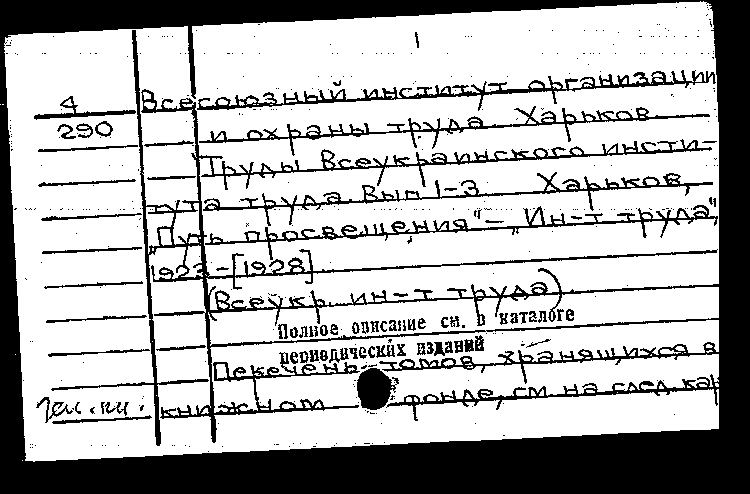 1
4 Всесоюзный институт организации
290 и охраны труда. Харьков.
Труды Всеукраинского инсти-
тута труда. Вып. 1-3. Харьков,
„Путь просвещения"–„Ин-т труда",
1923-[1928].
(Всеукр. ин-т труда).
Полное описание см. в каталоге
периодических изданий
Перечень томов, хранящихся в
книжном фонде, см. на след. кар